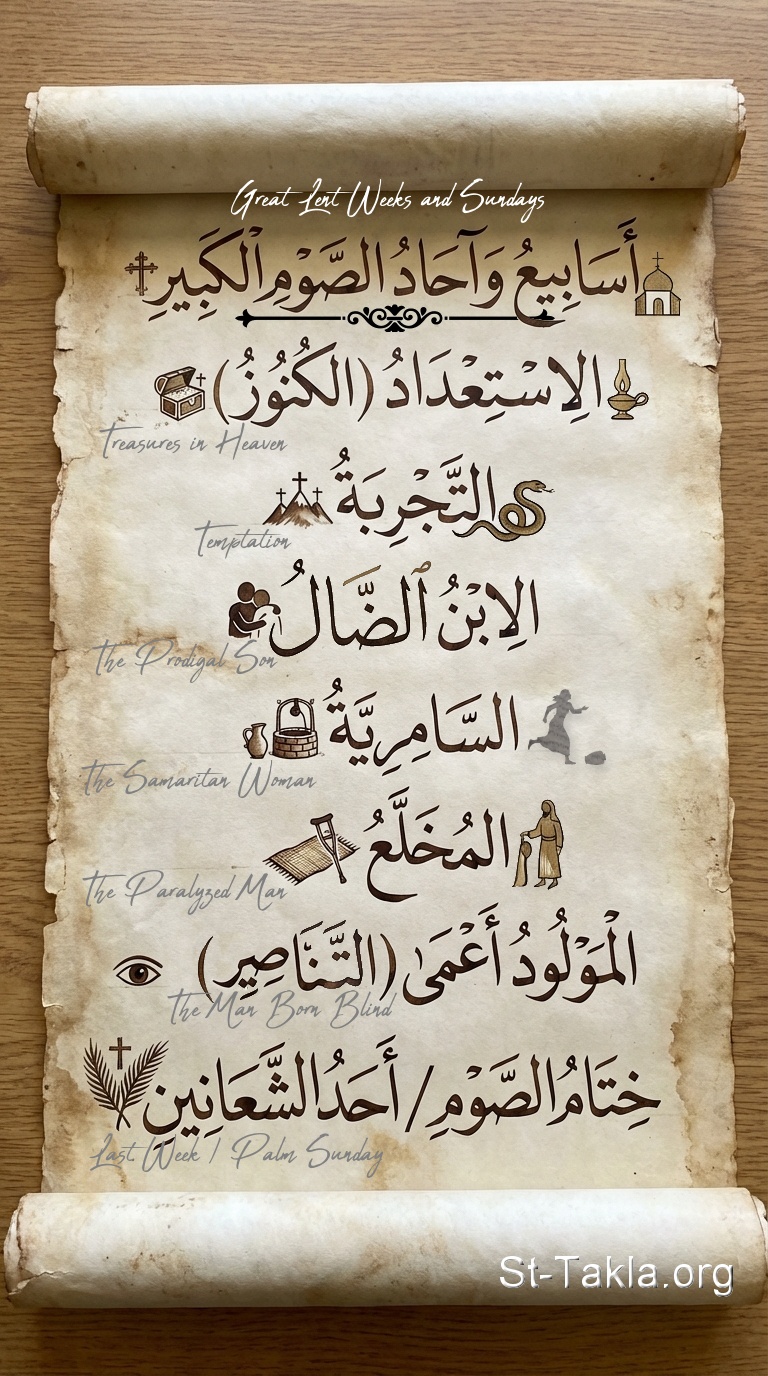 Great Lent Weeks and Sundays
أَسَابِيعُ وَآحَادُ الصَّوْمِ ٱلْكَبِيرِ
الِاسْتِعْدَادُ (الكُنُوزُ)
Treasures in Heaven
التَّجْرِبَةُ
Temptation
الِابْنُ ٱلضَّالُ
The Prodigal Son
السَّامِرِيَّةُ
The Samaritan Woman
المُخَلَّعُ
The Paralyzed Man
الْمَوْلُودُ أَعْمَىٰ (التَّنَاصِيرِ)
The Man Born Blind
خِتَامُ الصَّوْمِ / أَحَدُ الشَّعَانِينِ
Last Week / Palm Sunday
St-Takla.org